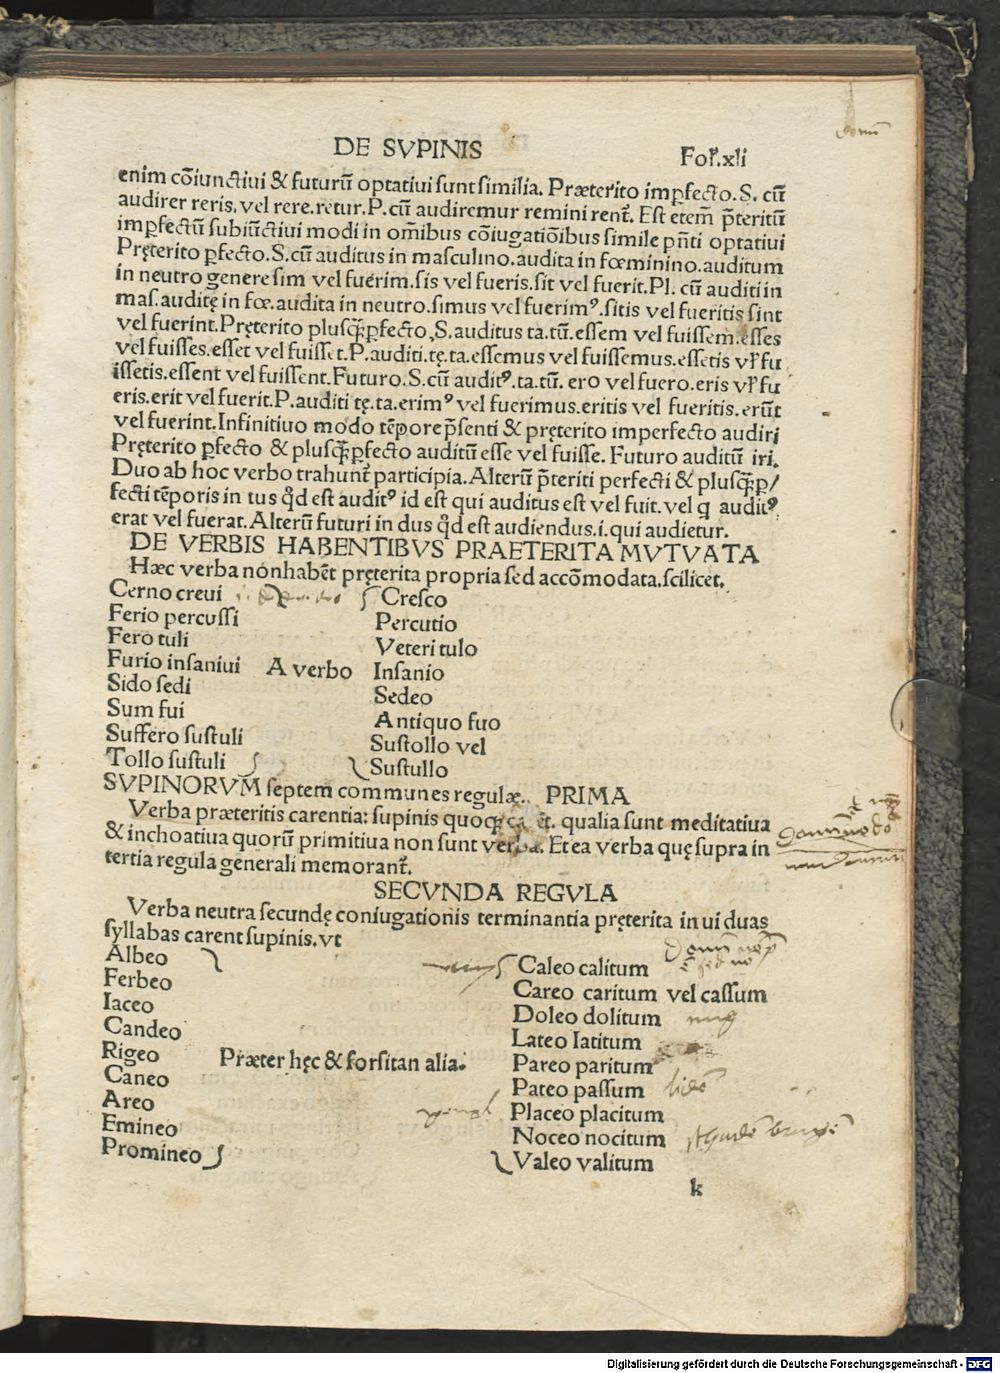 DE SVPINIS
Fol̃.xli
enim cõiunctiui & futurũ optatiui sunt similia. Præterito imꝑfecto.S. cũ
audirer reris. vel rere.retur.P.cũ audiremur remini rent᷑. Est etem̃ p̃teritũ
imꝑfectũ subiũctiui modi in om̃ibus cõiugatiõibus simile pñti optatiui
Pręterito ꝑfecto.S.cũ auditus in masculino.audita in fœminino.auditum
in neutro genere sim vel fuerim.sis vel fueris.sit vel fuerit.Pl. cũ auditi in
mas.auditę in fœ.audita in neutro.simus vel fuerimꝰ.sitis vel fueritis sint
vel fuerint.Pręterito plusq̃ꝑfecto.S.auditus ta.tũ.essem vel fuissem.esses
vel fuisses.esset vel fuisset.P.auditi.tę.ta.essemus vel fuissemus.essetis vl̃ fu
issetis.essent vel fuissent.Futuro.S.cũ auditꝰ.ta.tũ. ero vel fuero.eris vl̃ fu
eris.erit vel fuerit.P.auditi tę.ta.erimꝰ vel fuerimus.eritis vel fueritis.erũt
vel fuerint.Infinitiuo modo tẽpore p̃senti & pręterito imperfecto audiri
Pręterito ꝑfecto & plusq̃ꝑfecto auditũ esse vel fuisse. Futuro auditũ iri.
Duo ab hoc verbo trahunt᷑ participia.Alterũ p̃teriti perfecti & plusq̃ꝑ/
fecti tẽporis in tus qd̃ est auditꝰ id est qui auditus est vel fuit.vel q auditꝰ
erat vel fuerat.Alterũ futuri in dus qd̃ est audiendus.i.qui audietur.
DE VERBIS HABENTIBVS PRAETERITA MVTVATA
Hæc verba non habẽt pręterita propria sed accõmodata.scilicet.
Cerno creui Cresco
Ferio percussi Percutio
Fero tuli Veteri tulo
Furio insaniui A verbo Insanio
Sido sedi Sedeo
Sum fui Antiquo fuo
Suffero sustuli Sustollo vel
Tollo sustuli Sustullo
SVPINORVM septem communes regulæ. PRIMA
Verba præteritis carentia: supinis quoq; qualia sunt meditatiua
& inchoatiua quorũ primitiua non sunt verba. Et ea verba quę supra in
tertia regula generali memorant᷑.
SECVNDA REGVLA
Verba neutra secundę coniugationis terminantia pręterita in ui duas
syllabas carent supinis.vt
Albeo Caleo calitum
Ferbeo Careo caritum vel cassum
Iaceo Doleo dolitum
Candeo Lateo latitum
Rigeo Præter hęc & forsitan alia. Pareo paritum
Caneo Pateo passum
Areo Placeo placitum
Emineo Noceo nocitum
Promineo Valeo valitum
k
Digitalisierung gefördert durch die Deutsche Forschungsgemeinschaft - DFG